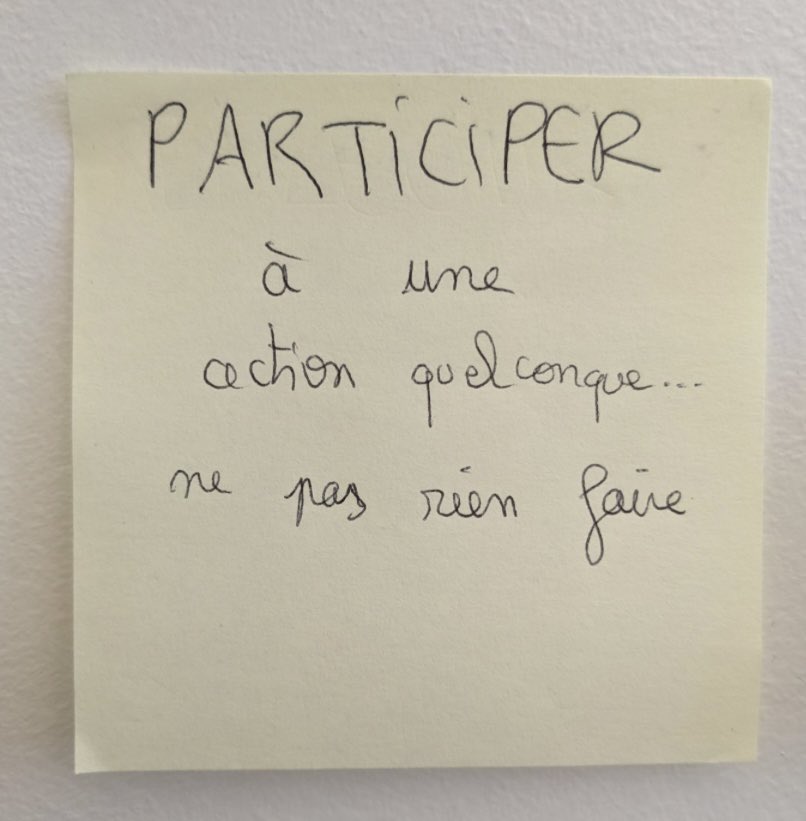 PARTICIPER
à une
action quelconque...
ne pas rien faire